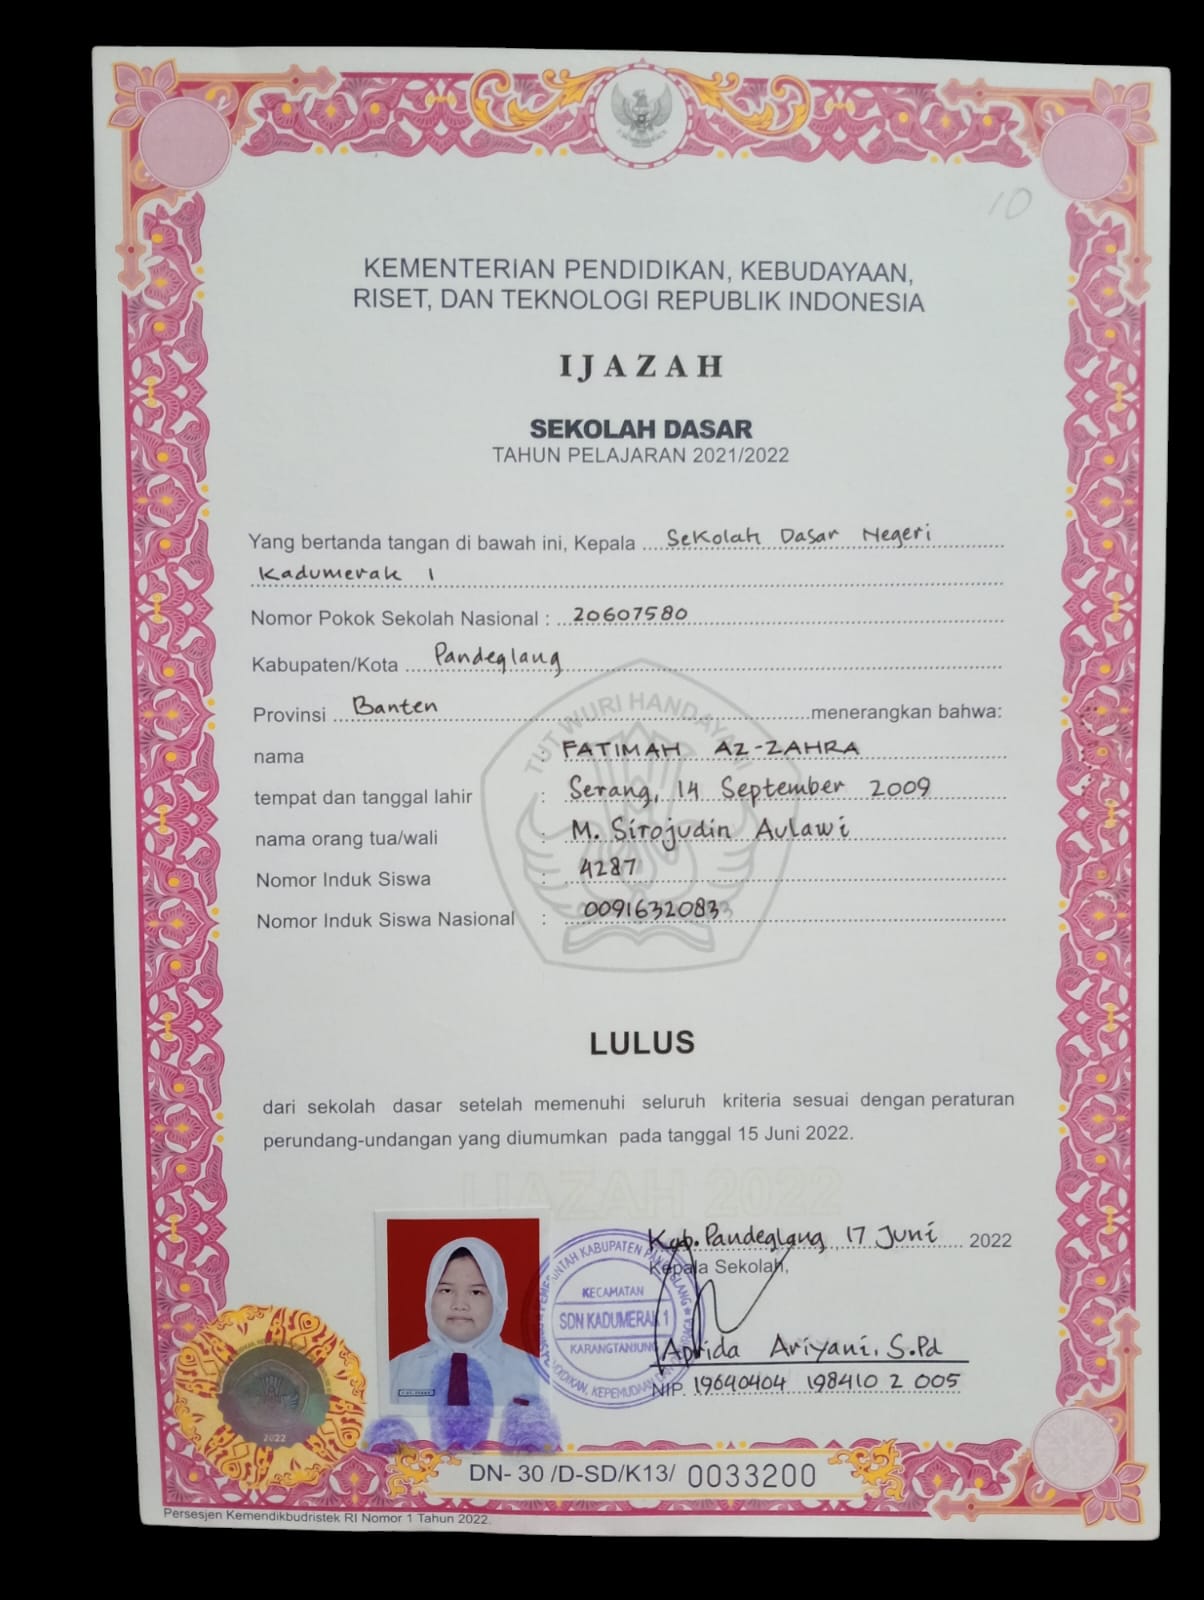 10
KEMENTERIAN PENDIDIKAN, KEBUDAYAAN,
RISET, DAN TEKNOLOGI REPUBLIK INDONESIA
IJAZAH
SEKOLAH DASAR
TAHUN PELAJARAN 2021/2022
Yang bertanda tangan di bawah ini, Kepala Sekolah Dasar Negeri
Kadumerak 1
Nomor Pokok Sekolah Nasional : 20607580
Kabupaten/Kota Pandeglang
Provinsi Banten menerangkan bahwa:
TUT WURI HANDAYANI
nama : FATIMAH AZ-ZAHRA
tempat dan tanggal lahir : Serang, 14 September 2009
nama orang tua/wali : M. Sirojudin Aulawi
Nomor Induk Siswa : 4287
Nomor Induk Siswa Nasional : 00916320833
LULUS
dari sekolah dasar setelah memenuhi seluruh kriteria sesuai dengan peraturan
perundang-undangan yang diumumkan pada tanggal 15 Juni 2022.
IJAZAH 2022
Kab. Pandeglang, 17 Juni 2022
Kepala Sekolah,
KABUPATEN
KECAMATAN
SDN KADUMERAK 1
KARANGTANJUNG
Aprida Ariyani, S.Pd
NIP. 19640404 198410 2 005
2022
DN- 30 /D-SD/K13/ 0033200
Persesjen Kemendikbudristek RI Nomor 1 Tahun 2022.